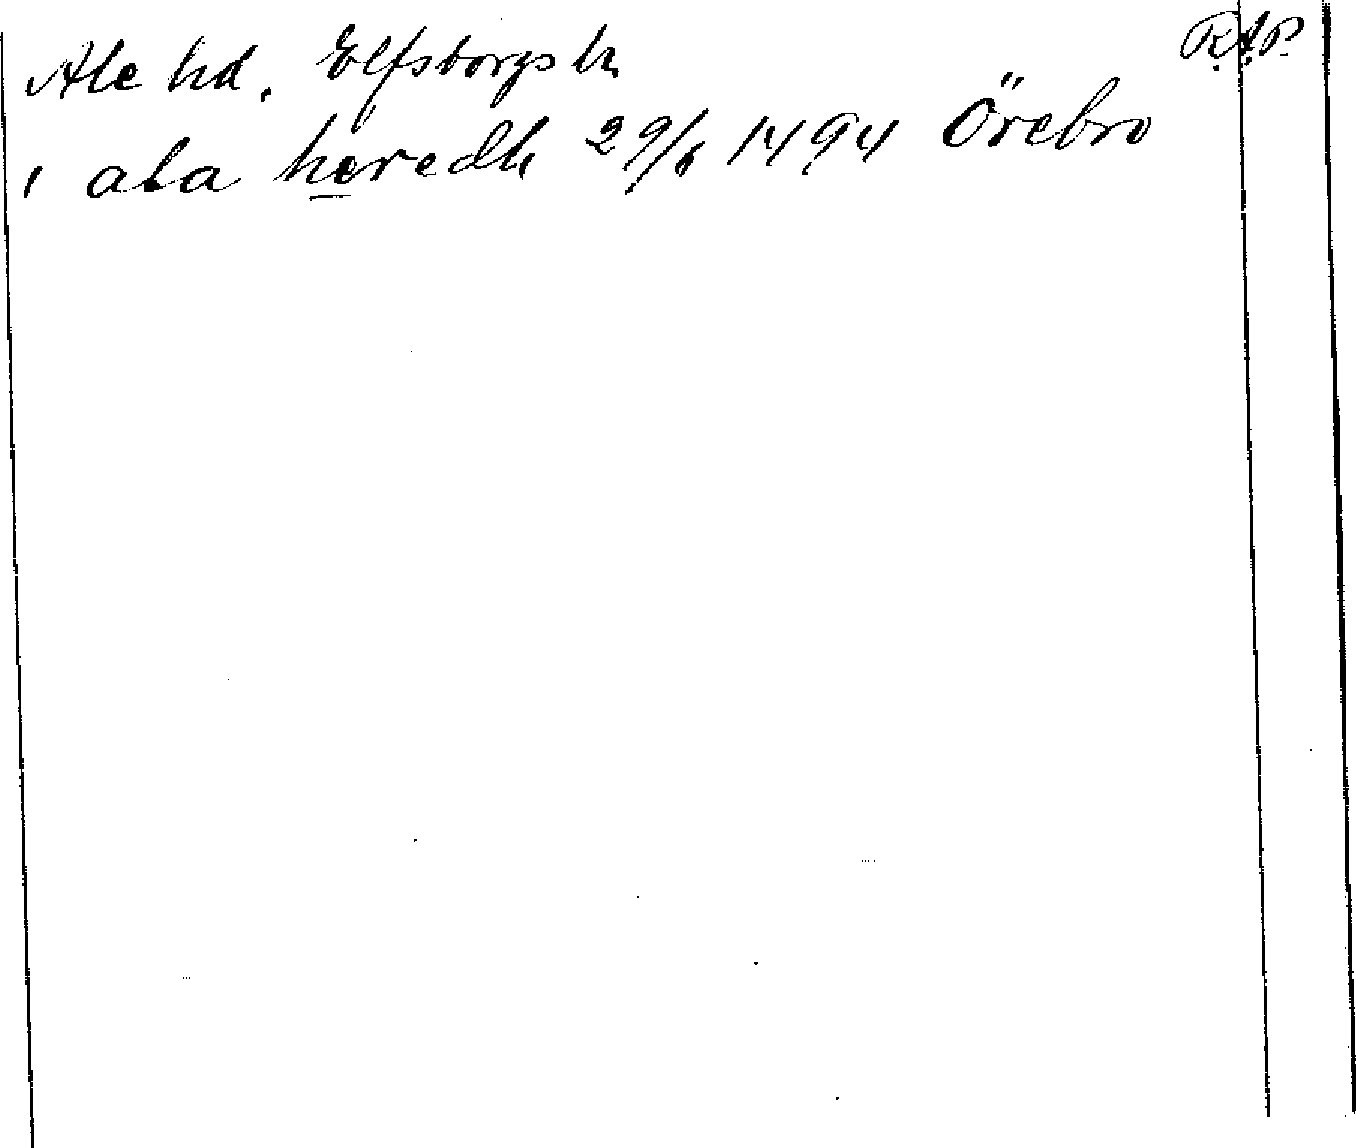 Ale hd. Elfsborgs ln R.A.P.
i ala heredh 29/6 1494 Örebro